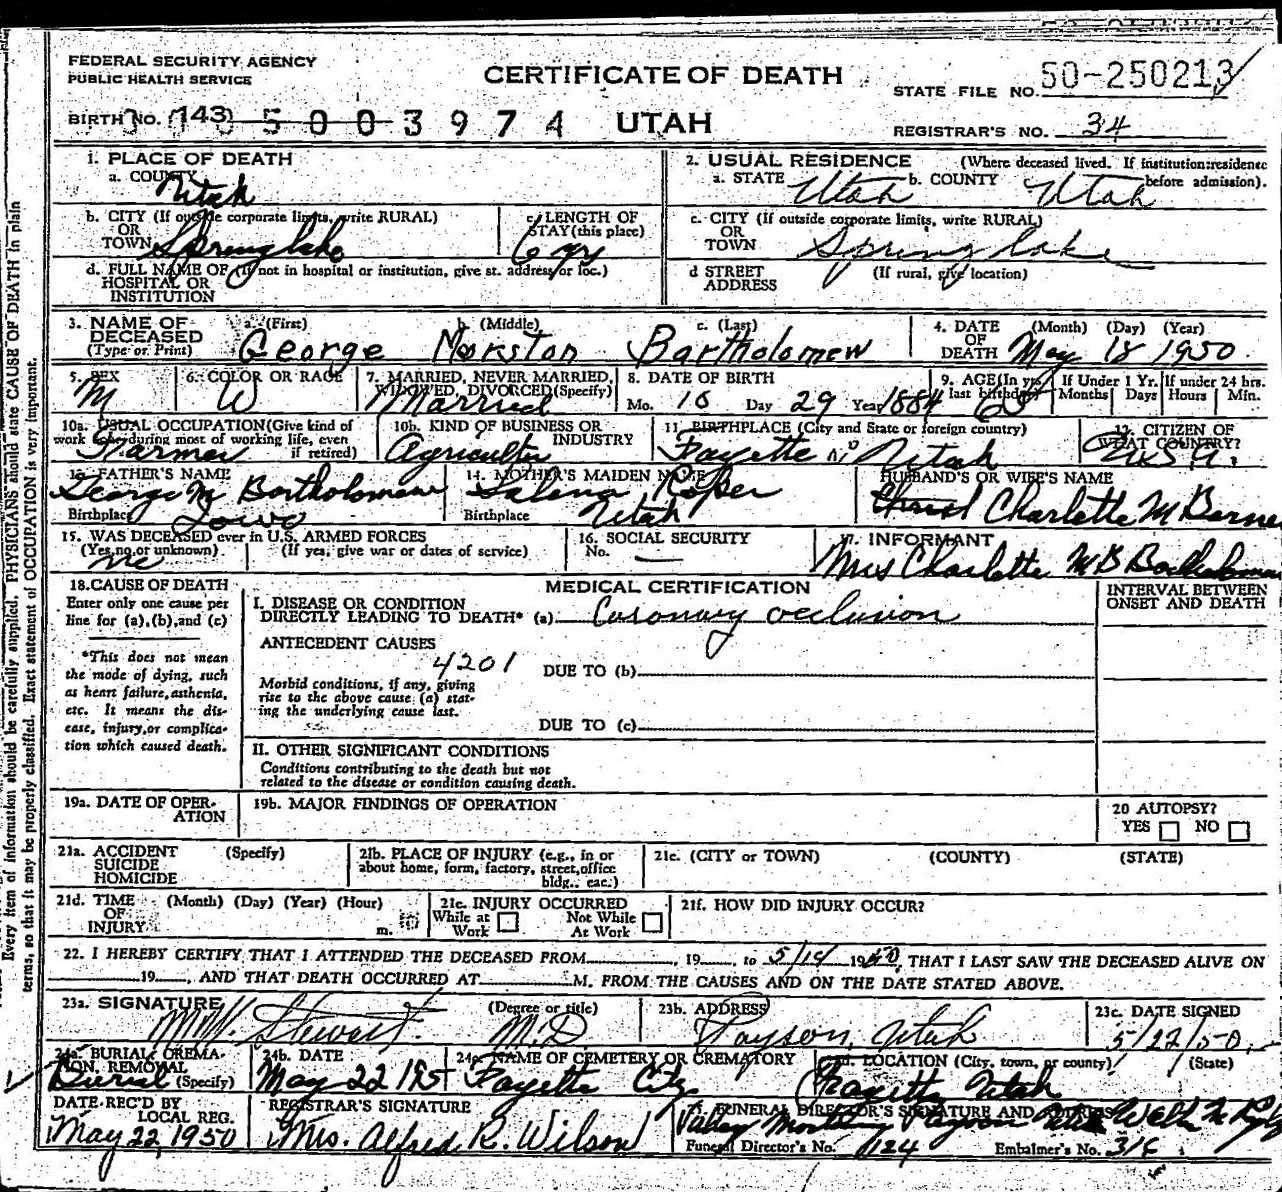 FEDERAL SECURITY AGENCY
PUBLIC HEALTH SERVICE
CERTIFICATE OF DEATH
UTAH
STATE FILE NO. 50-250213
BIRTH NO. 143 5003974
REGISTRAR'S NO. 34
1. PLACE OF DEATH
a. COUNTY Utah
b. CITY (If outside corporate limits, write RURAL) OR TOWN Spring lake
c. LENGTH OF STAY (this place) 6 yrs
d. FULL NAME OF (If not in hospital or institution, give st. address or loc.) HOSPITAL OR INSTITUTION
2. USUAL RESIDENCE (Where deceased lived. If institution: residence before admission).
a. STATE Utah b. COUNTY Utah
c. CITY (If outside corporate limits, write RURAL) OR TOWN Spring lake
d STREET ADDRESS (If rural, give location)
3. NAME OF DECEASED (Type or Print) a. (First) George b. (Middle) c. (Last) Bartholomew
4. DATE OF DEATH (Month) (Day) (Year) May 18 1950.
5. SEX M
6. COLOR OR RACE W
7. MARRIED, NEVER MARRIED, WIDOWED, DIVORCED (Specify) Married
8. DATE OF BIRTH Mo. 10 Day 29 Year 1884
9. AGE (In yrs. last birthday) 65 If Under 1 Yr. Months Days If under 24 hrs. Hours Min.
10a. USUAL OCCUPATION (Give kind of work done during most of working life, even if retired) Farmer
10b. KIND OF BUSINESS OR INDUSTRY
11. BIRTHPLACE (City and State or foreign country) Fayette Utah
12. CITIZEN OF WHAT COUNTRY? U.S.A.
13. FATHER'S NAME George M Bartholomew
Birthplace Iowa
14. MOTHER'S MAIDEN NAME
Birthplace Utah
HUSBAND'S OR WIFE'S NAME Charlotte M
15. WAS DECEASED ever in U.S. ARMED FORCES (Yes, no, or unknown) (If yes, give war or dates of service) no
16. SOCIAL SECURITY No. —
17. INFORMANT Mrs Charlotte M B Bartholomew
18. CAUSE OF DEATH
Enter only one cause per line for (a), (b), and (c)
*This does not mean the mode of dying, such as heart failure, asthenia, etc. It means the disease, injury, or complication which caused death.
MEDICAL CERTIFICATION
INTERVAL BETWEEN ONSET AND DEATH
I. DISEASE OR CONDITION DIRECTLY LEADING TO DEATH* (a) Coronary occlusion
ANTECEDENT CAUSES
4201
DUE TO (b)
Morbid conditions, if any, giving rise to the above cause (a) stating the underlying cause last.
DUE TO (c)
II. OTHER SIGNIFICANT CONDITIONS
Conditions contributing to the death but not related to the disease or condition causing death.
19a. DATE OF OPERATION
19b. MAJOR FINDINGS OF OPERATION
20 AUTOPSY? YES NO
21a. ACCIDENT SUICIDE HOMICIDE (Specify)
21b. PLACE OF INJURY (e.g., in or about home, form, factory, street, office bldg., eac.)
21c. (CITY or TOWN) (COUNTY) (STATE)
21d. TIME OF INJURY (Month) (Day) (Year) (Hour) m.
21e. INJURY OCCURRED While at Work Not While At Work
21f. HOW DID INJURY OCCUR?
22. I HEREBY CERTIFY THAT I ATTENDED THE DECEASED FROM , 19 , to 5/18 1950, THAT I LAST SAW THE DECEASED ALIVE ON
19 , AND THAT DEATH OCCURRED AT M. FROM THE CAUSES AND ON THE DATE STATED ABOVE.
23a. SIGNATURE Stewart (Degree or title) M.D
23b. ADDRESS Payson, Utah
23c. DATE SIGNED 5/22/50.
24a. BURIAL, CREMATION, REMOVAL (Specify) Burial
24b. DATE May 22 195
24c. NAME OF CEMETERY OR CREMATORY Fayette City
24d. LOCATION (City, town, or county) (State) Fayette Utah
DATE REC'D BY LOCAL REG. May 22, 1950
REGISTRAR'S SIGNATURE Mrs. Alfred R. Wilson
FUNERAL DIRECTOR'S SIGNATURE AND ADDRESS Valley Mortuary Payson Utah
Funeral Director's No. 124
Embalmer's No. 316
Every item of information should be carefully supplied. PHYSICIANS should state CAUSE OF DEATH in plain
terms, so that it may be properly classified. Exact statement of OCCUPATION is very important.